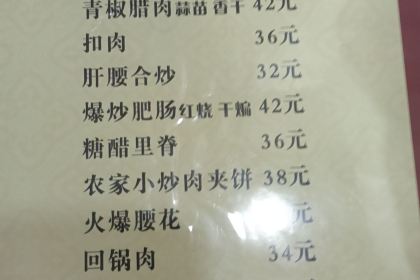 青椒腊肉蒜苗 香干 42元
扣肉 36元
肝腰合炒 32元
爆炒肥肠红烧 干煸 42元
糖醋里脊 36元
农家小炒肉夹饼 38元
火爆腰花 元
回锅肉 34元